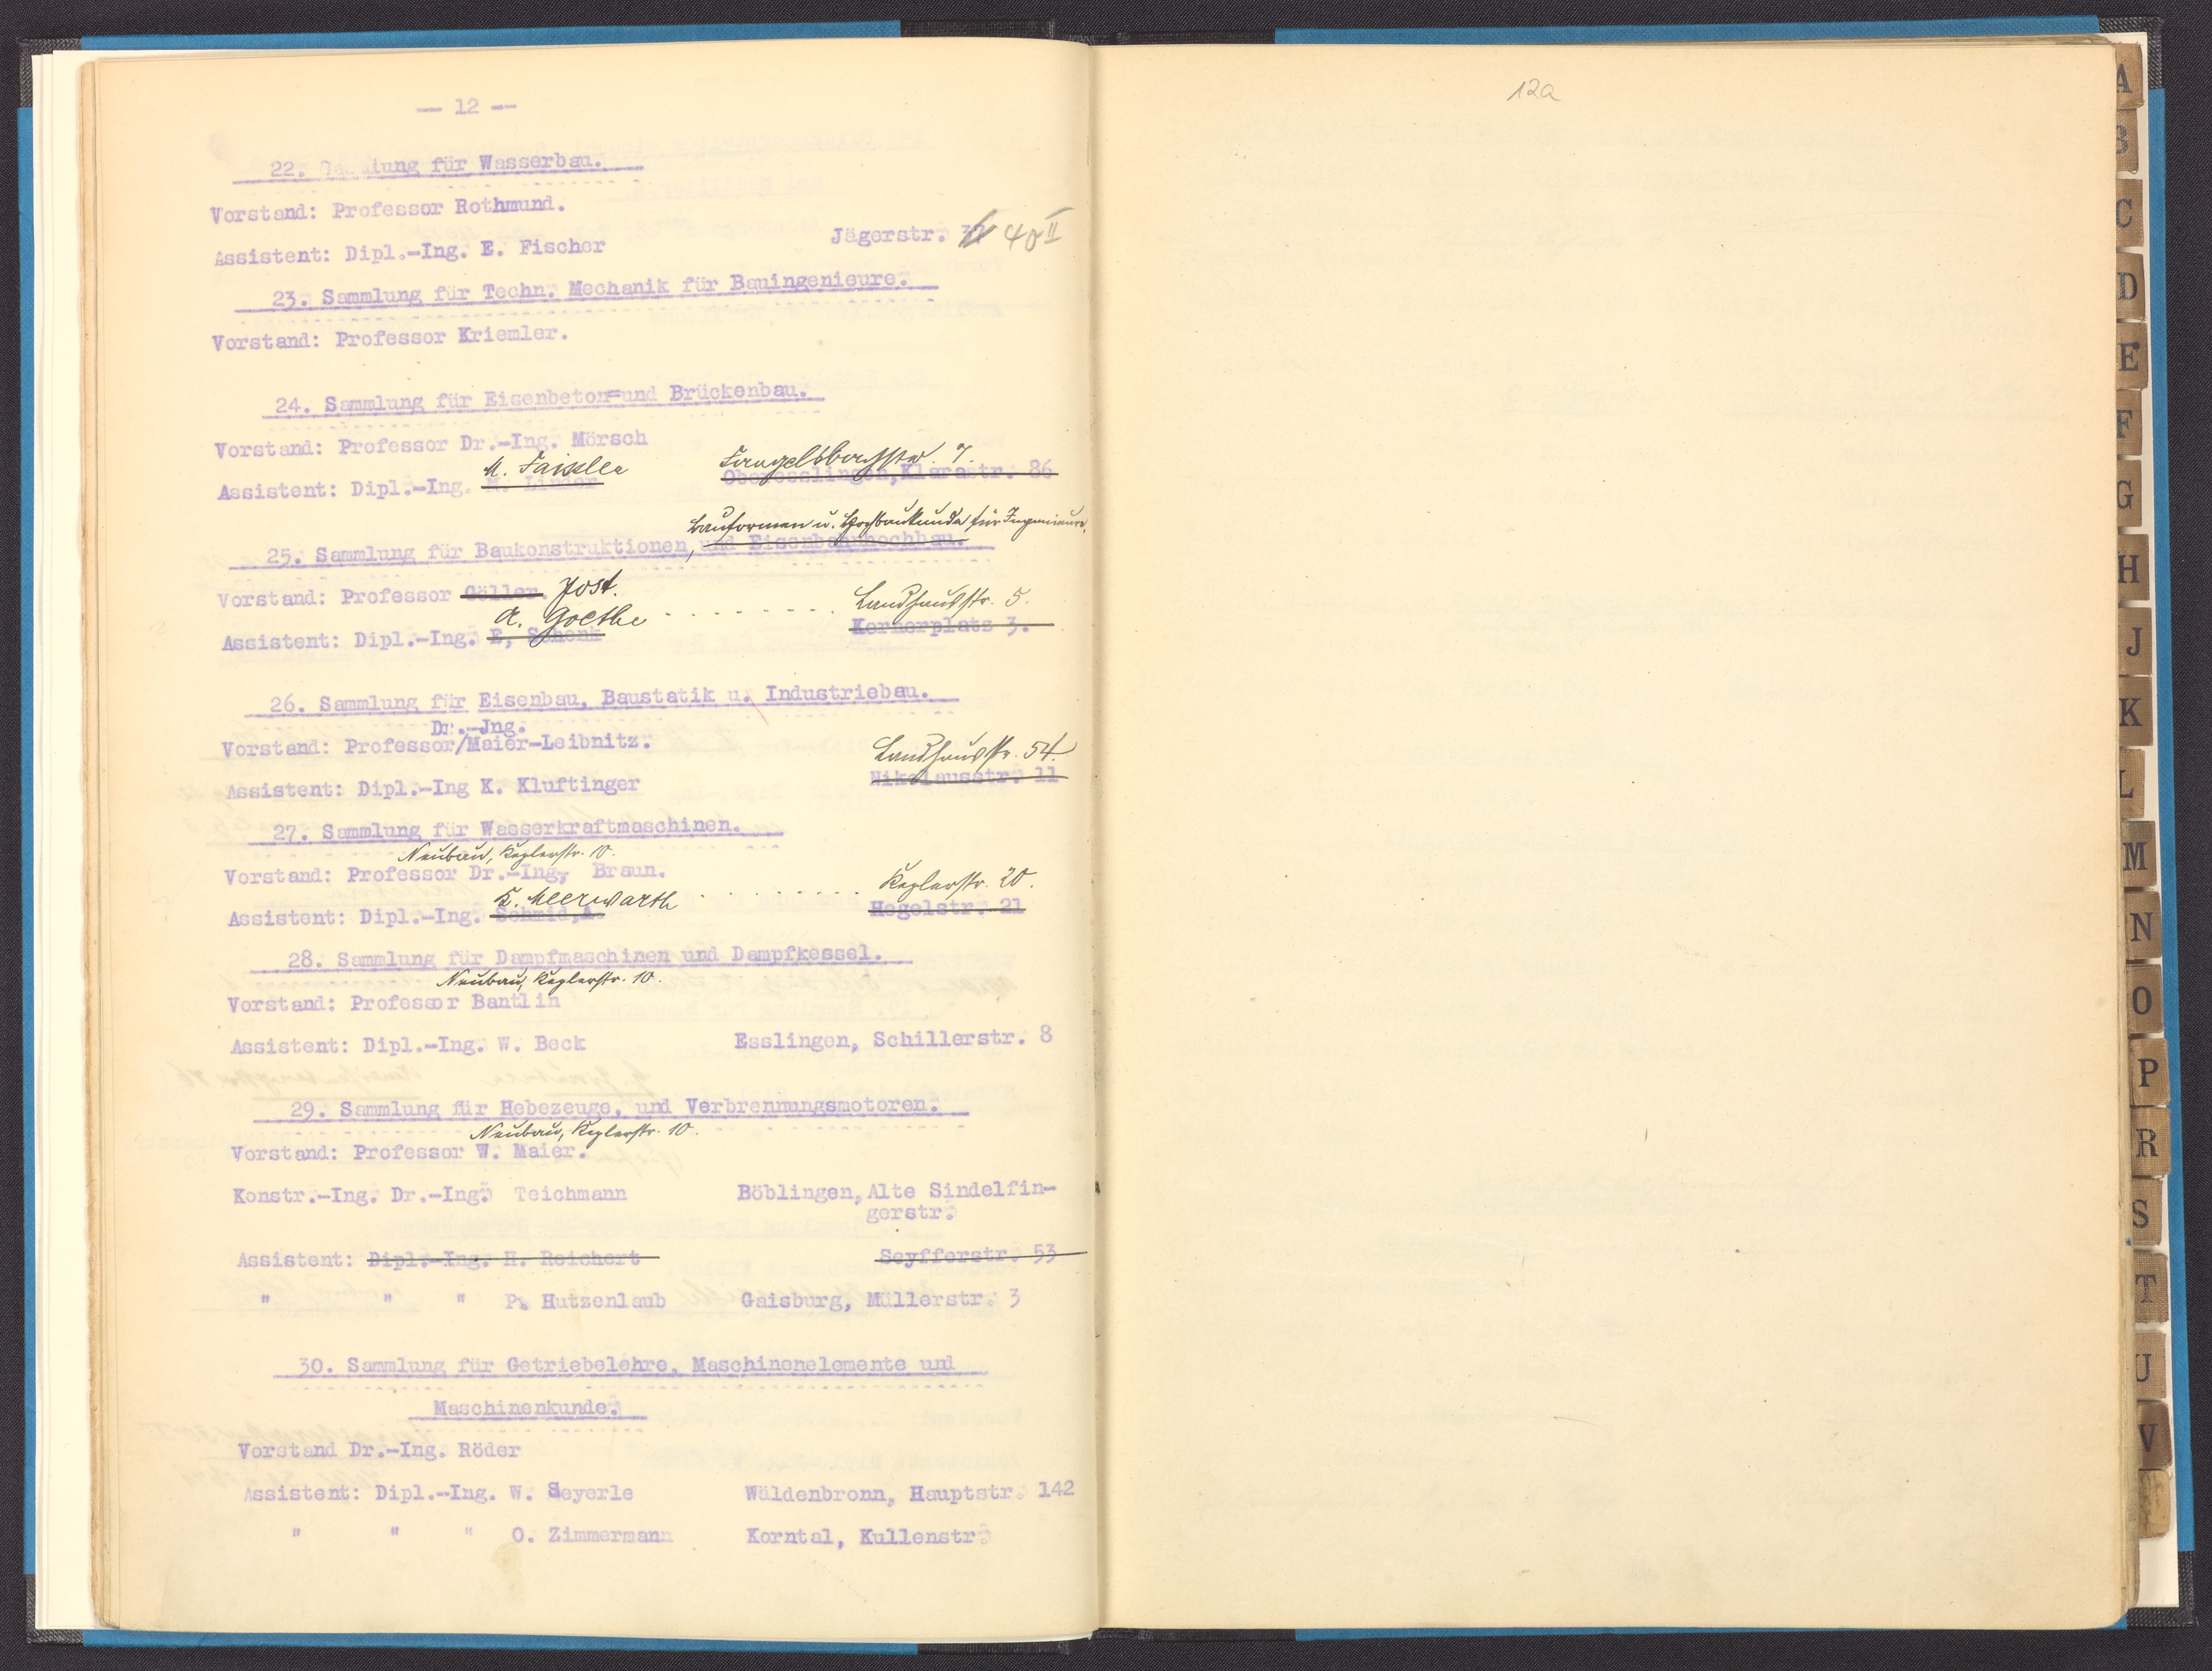 — 12 —
22. Sammlung für Wasserbau.
Vorstand: Professor Rothmund.
Assistent: Dipl.-Ing. E. Fischer Jägerstr. 40 II
23. Sammlung für Techn. Mechanik für Bauingenieure.
Vorstand: Professor Kriemler.
24. Sammlung für Eisenbeton=und Brückenbau.
Vorstand: Professor Dr.-Ing. Mörsch
M. Faissler Fangelsbachstr. 7.
Assistent: Dipl.-Ing. M. Linder Oberesslingen,Klarastr. 86
Bauformen u. Hochbaukunde für Ingenieure.
25. Sammlung für Baukonstruktionen, und Eisenbahnhochbau.
Vorstand: Professor Göller. Jost.
A. Goethe - - - - - - - - Landhausstr. 5.
Assistent: Dipl.-Ing. E, Schenk Kernerplatz 3.
26. Sammlung für Eisenbau, Baustatik u. Industriebau.
Dr.-Jng.
Vorstand: Professor/Maier-Leibnitz.
Landhausstr. 54.
Assistent: Dipl.-Ing K. Kluftinger Nikolausstr. 11
27. Sammlung für Wasserkraftmaschinen.
Neubau, Keplerstr. 10.
Vorstand: Professor Dr.-Ing, Braun.
K. Meerwarth - - - - - - - - Keplerstr. 20.
Assistent: Dipl.-Ing. Schmid,A. Hegelstr. 21
28. Sammlung für Dampfmaschinen und Dampfkessel.
Neubau, Keplerstr. 10.
Vorstand: Professor Bantlin
Assistent: Dipl.-Ing. W. Beck Esslingen, Schillerstr. 8
29. Sammlung für Hebezeuge, und Verbrennungsmotoren.
Neubau, Keplerstr. 10.
Vorstand: Professor W. Maier.
Konstr.-Ing. Dr.-Ing. Teichmann Böblingen, Alte Sindelfin-
gerstr.
Assistent: Dipl.-Ing. H. Reichert Seyfferstr. 53
" " " P. Hutzenlaub Gaisburg, Müllerstr. 3
30. Sammlung für Getriebelehre, Maschinenelemente und
Maschinenkunde.
Vorstand Dr.-Ing. Röder
Assistent: Dipl.-Ing. W. Seyerle Wäldenbronn, Hauptstr. 142
" " " O. Zimmermann Korntal, Kullenstr.
12a
A
B
C
D
E
F
G
H
J
K
L
M
N
O
P
R
S
T
U
V